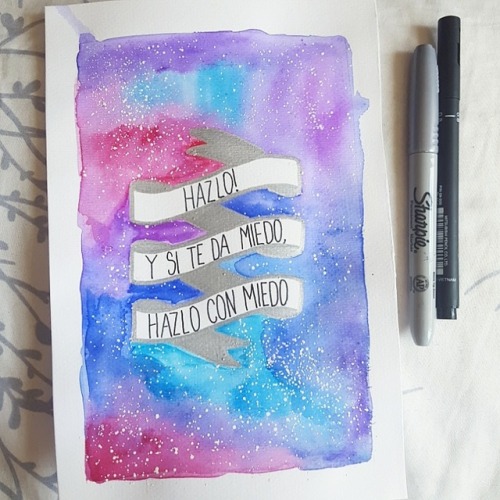 HAZLO!
Y SI TE DA MIEDO,
HAZLO CON MIEDO
Sharpie